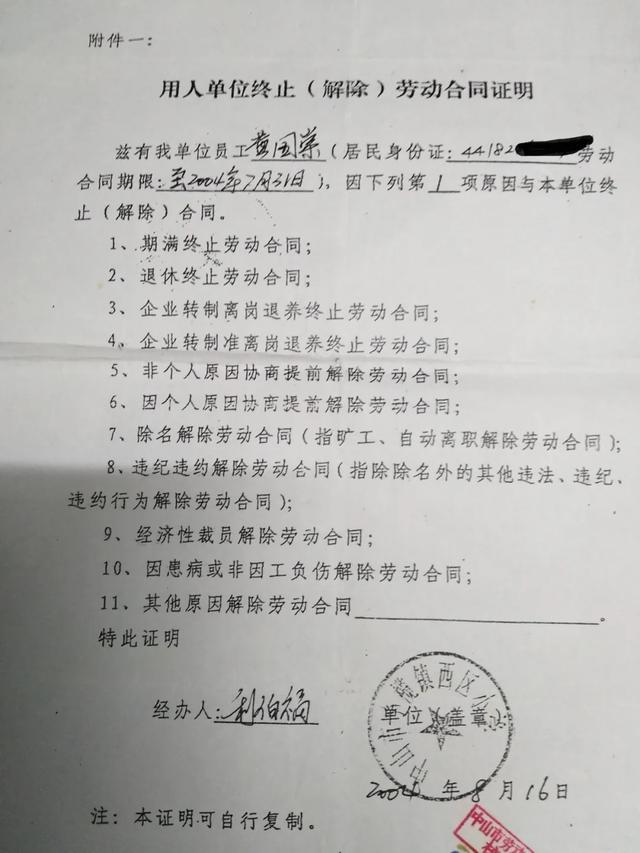 附件一：
用人单位终止（解除）劳动合同证明
兹有我单位员工黄国荣（居民身份证：44182 劳动
合同期限：至2004年7月31日），因下列第1项原因与本单位终
止（解除）合同。
1、期满终止劳动合同；
2、退休终止劳动合同；
3、企业转制离岗退养终止劳动合同；
4、企业转制准离岗退养终止劳动合同；
5、非个人原因协商提前解除劳动合同；
6、因个人原因协商提前解除劳动合同；
7、除名解除劳动合同（指旷工、自动离职解除劳动合同）；
8、违纪违约解除劳动合同（指除除名外的其他违法、违纪、
违约行为解除劳动合同）；
9、经济性裁员解除劳动合同；
10、因患病或非因工负伤解除劳动合同；
11、其他原因解除劳动合同 。
特此证明
经办人：利伯福
单位（盖章）
中山市 镇西区
2004年8月16日
注：本证明可自行复制。
中山市劳动